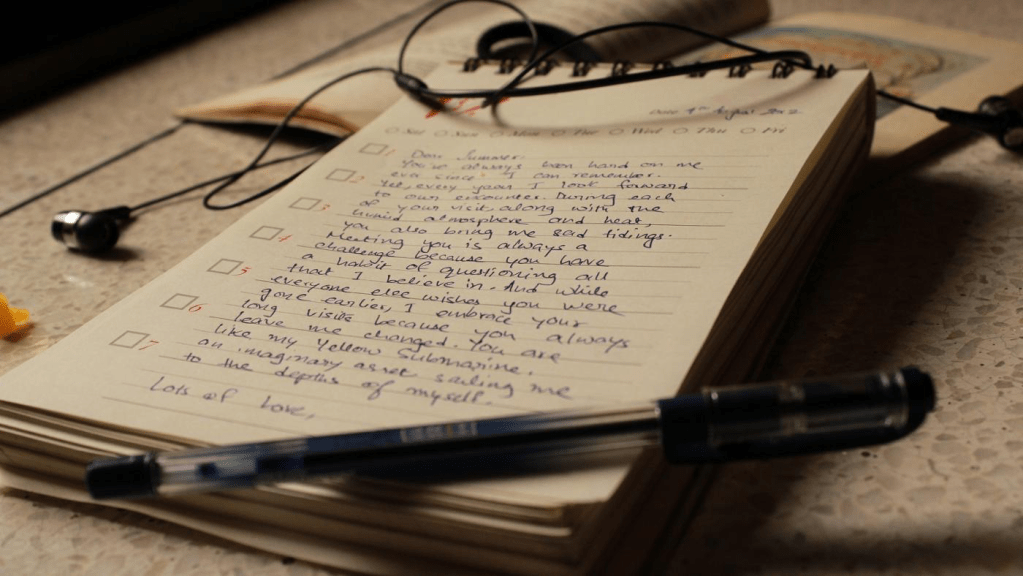 Date 4th August 2022
Sat Sun Mon Tue Wed Thu Fri
1 Dear Summer,
You've always been hard on me
ever since I can remember.
2 Yet, every year I look forward
to our encounter. During each
of your visit along with the
3 humid atmosphere and heat,
you also bring me sad tidings.
4 Meeting you is always a
challenge because you have
a habit of questioning all
5 that I believe in. And while
everyone else wishes you were
6 gone earlier, I embrace your
long visits because you always
leave me changed. You are
7 like my Yellow Submarine,
an imaginary asset sailing me
to the depths of myself.
Lots of Love,